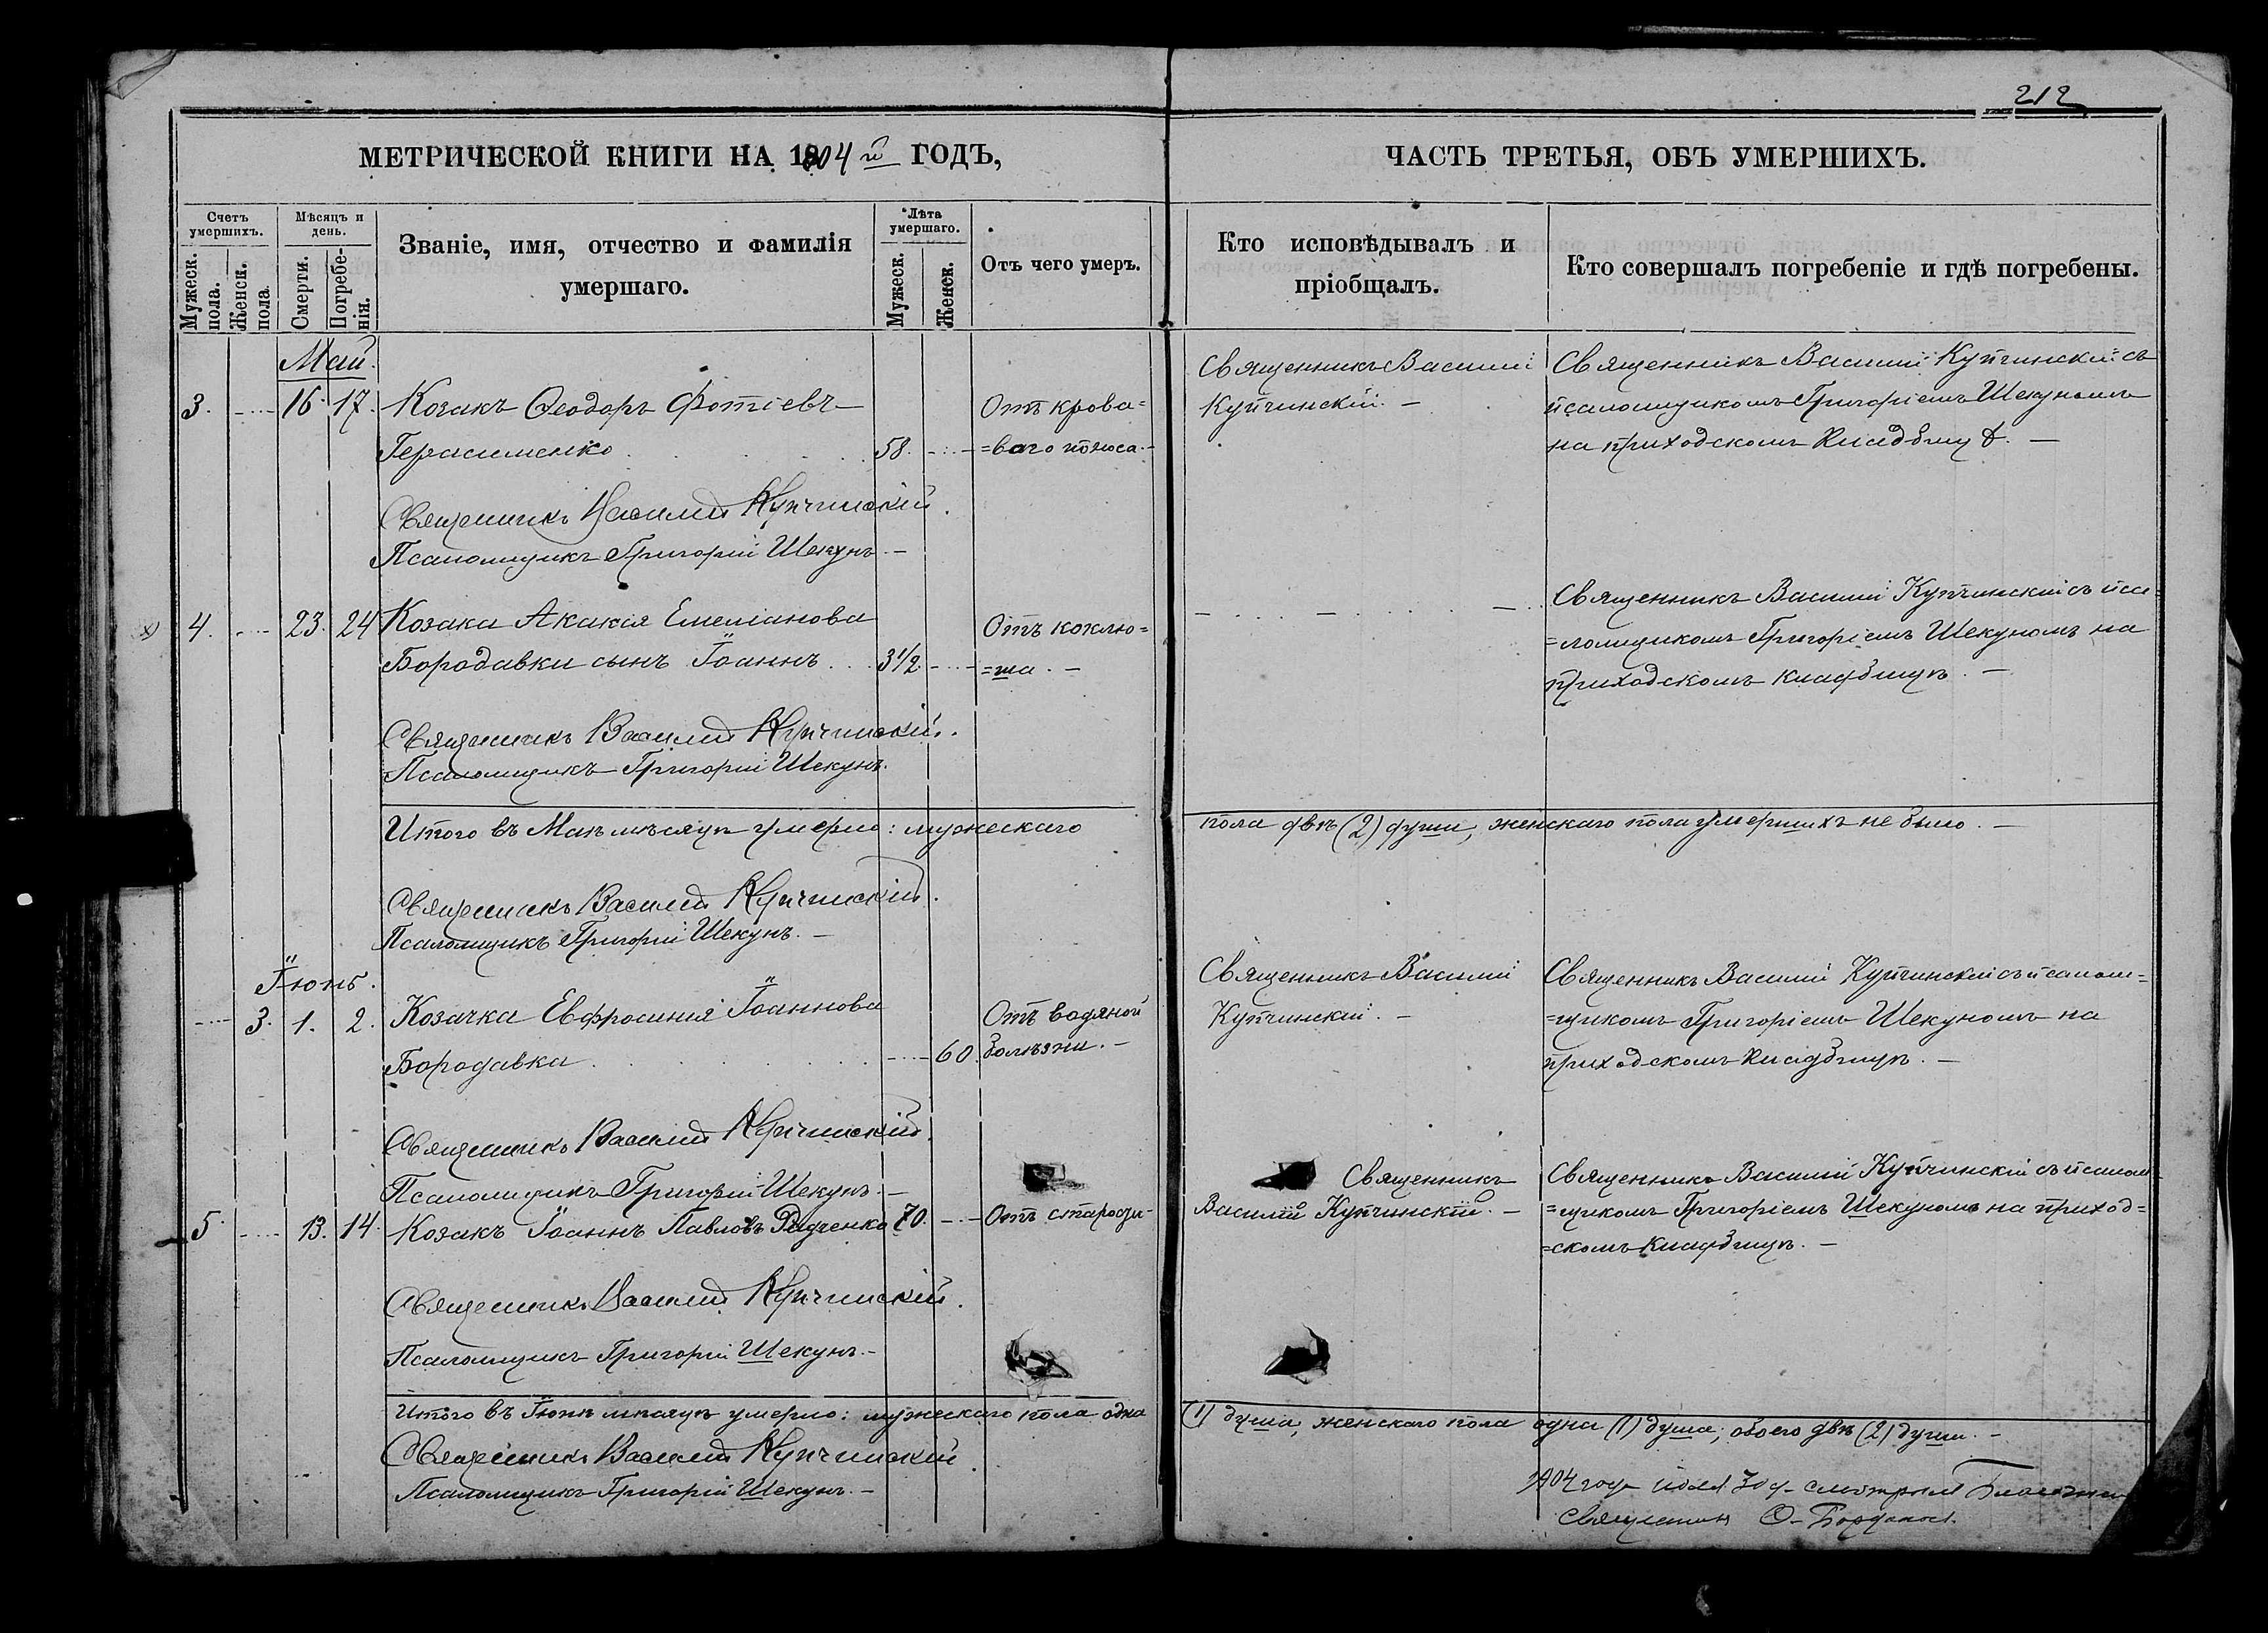 212
МЕТРИЧЕСКОЙ КНИГИ НА 1904й ГОДЪ,
ЧАСТЬ ТРЕТЬЯ, ОБЪ УМЕРШИХЪ.
Счетъ умершихъ.
Мужеск. пола.
Женск. пола.
Мѣсяцъ и день.
Смерти.
Погребенія.
Званіе, имя, отчество и фамилія
умершаго.
Лѣта умершаго.
Мужеск.
Женск.
Отъ чего умеръ.
Кто исповѣдывалъ и
пріобщалъ.
Кто совершалъ погребеніе и гдѣ погребены.
Май.
3. 16 17. Козакъ Ѳеодоръ Фотіевъ
Герасименко 58.
Отъ крова=
=ваго поноса.
Священникъ Василій
Купчинскій. –
Священникъ Василій Купчинскій съ
псаломщикомъ Григоріемъ Шекуномъ
на приходскомъ кладбищѣ. –
Священникъ Василій Купчинскій.
Псаломщикъ Григорій Шекунъ. –
4. 23. 24 Козака Акакія Емеліанова
Бородавки сынъ Іоаннъ 3 1/2
Отъ коклю=
=ша. –
Священникъ Василій Купчинскій съ пса=
=ломщикомъ Григоріемъ Шекуномъ на
приходскомъ кладбищѣ. –
Священникъ Василій Купчинскій.
Псаломщикъ Григорій Шекунъ.
Итого въ Маѣ мѣсяцѣ умерло: мужескаго
пола двѣ (2) души, женскаго пола умершихъ не было. –
Священникъ Василій Купчинскій.
Псаломщикъ Григорій Шекунъ. –
Іюнь.
3. 1. 2. Козачка Евфросинія Іоаннова
Бородавка 60.
Отъ водяной
болѣзни. –
Священникъ Василій
Купчинскій. –
Священникъ Василій Купчинскій съ псалом=
=щикомъ Григоріемъ Шекуномъ на
приходскомъ кладбищѣ. –
Священникъ Василій Купчинскій.
Псаломщикъ Григорій Шекунъ. –
5. 13. 14. Козакъ Іоаннъ Павловъ Радченко 70.
Отъ старости
Священникъ
Василій Купчинскій. –
Священникъ Василій Купчинскій съ псалом
=щикомъ Григоріемъ Шекуномъ на приход=
=скомъ кладбищѣ. –
Священникъ Василій Купчинскій.
Псаломщикъ Григорій Шекунъ. –
Итого въ Іюнѣ мѣсяцѣ умерло: мужескаго пола одна
(1) душа, женскаго пола одна (1) душа; обоего двѣ (2) души. –
Священникъ Василій Купчинскій
Псаломщикъ Григорій Шекунъ. –
1904 года іюля 30 д. смотрѣлъ
Священникъ